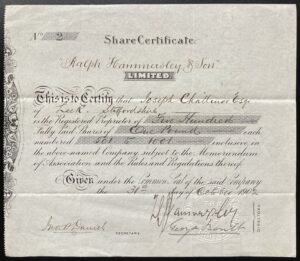 No 2 Share Certificate.
Ralph Hammersley & Son
LIMITED.
This is to Certify that Joseph Challinor Esq.
of Leek Staffordshire
is the Registered Proprietor of Five Hundred
Fully Paid Shares of One Pound each
numbered 501 to 1001 inclusive in
the above-named Company, subject to the Memorandum
of Association and the Rules and Regulations thereof
Given under the Common Seal of the said Company
the 31st day of October 1902
Hammersley
SECRETARY.
DIRECTORS.